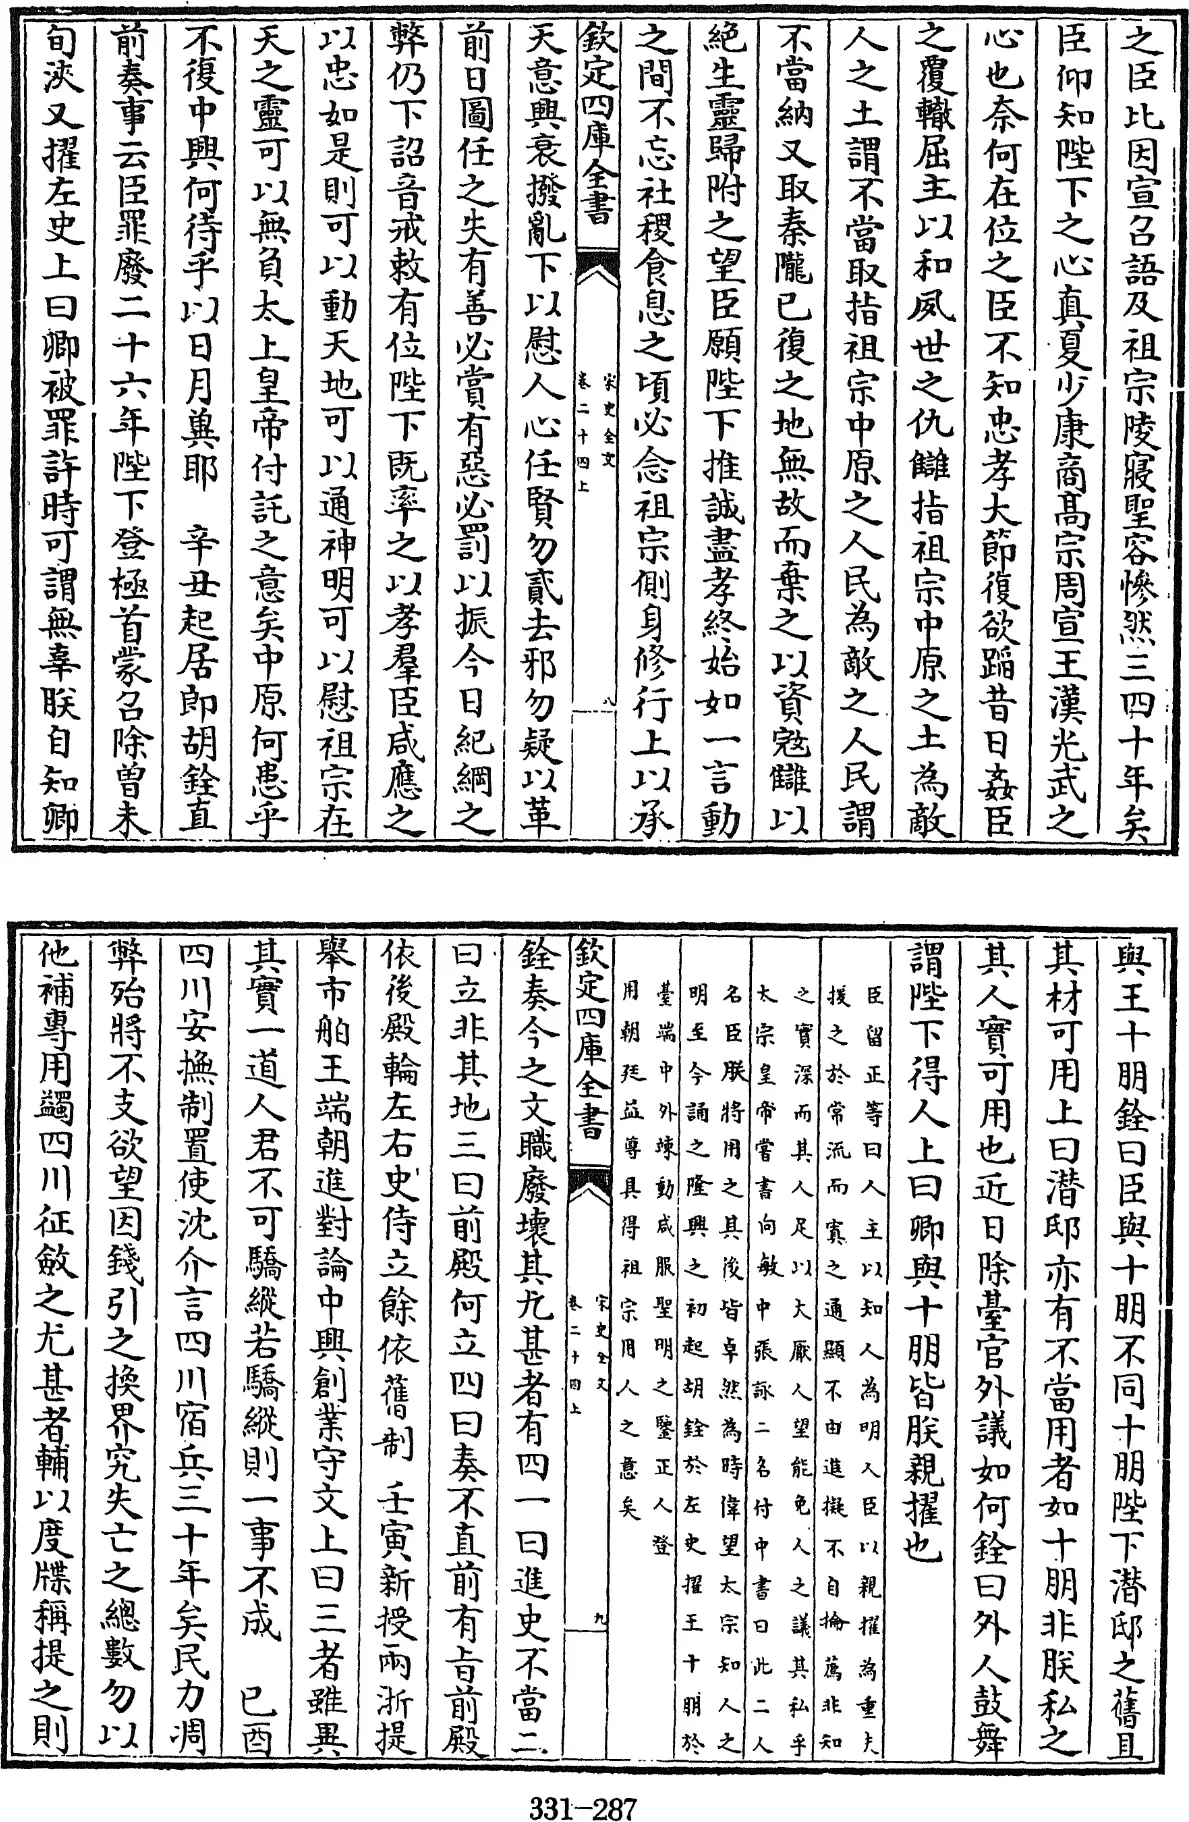 之臣比因宣召語及祖宗陵寢聖容慘然三四十年矣
臣仰知陛下之心真夏少康商髙宗周宣王漢光武之
心也奈何在位之臣不知忠孝大節復欲蹈昔日姦臣
之覆轍屈主以和夙世之仇讎指祖宗中原之土為敵
人之土謂不當取指祖宗中原之人民為敵之人民謂
不當納又取秦隴已復之地無故而棄之以資宼讎以
絶生靈歸附之望臣願陛下推誠盡孝終始如一言動
之間不忘社稷食息之頃必念祖宗側身修行上以承
欽定四庫全書
宋史全文
卷二十四上
八
天意興衰撥亂下以慰人心任賢勿貳去邪勿疑以革
前日圖任之失有善必賞有惡必罰以振今日紀綱之
弊仍下詔音戒敕有位陛下既率之以孝羣臣咸應之
以忠如是則可以動天地可以通神明可以慰祖宗在
天之靈可以無負太上皇帝付託之意矣中原何患乎
不復中興何待乎以日月兾耶 辛丑起居郎胡銓直
前奏事云臣罪廢二十六年陛下登極首蒙召除曽未
旬浹又擢左史上曰卿被罪許時可謂無辜朕自知卿
與王十朋銓曰臣與十朋不同十朋陛下潜邸之舊且
其材可用上曰潜邸亦有不當用者如十朋非朕私之
其人實可用也近日除臺官外議如何銓曰外人鼓舞
謂陛下得人上曰卿與十朋皆朕親擢也
臣留正等曰人主以知人為明人臣以親擢為重夫
援之於常流而寘之通顯不由進擬不自掄薦非知
之實深而其人足以大厭人望能免人之議其私乎
太宗皇帝嘗書向敏中張詠二名付中書曰此二人
名臣朕將用之其後皆卓然為時偉望太宗知人之
明至今誦之隆興之初起胡銓於左史擢王十朋於
臺端中外竦動咸服聖明之鑒正人登
用朝廷益尊具得祖宗用人之意矣
欽定四庫全書
宋史全文
卷二十四上
九
銓奏今之文職廢壞其尤甚者有四一曰進史不當二
曰立非其地三曰前殿何立四曰奏不直前有㫖前殿
依後殿輪左右史侍立餘依舊制 壬寅新授兩浙提
舉市舶王端朝進對論中興創業守文上曰三者雖異
其實一道人君不可驕縱若驕縱則一事不成 已酉
四川安撫制置使沈介言四川宿兵三十年矣民力凋
弊殆將不支欲望因錢引之換界究失亡之總數勿以
他補專用蠲四川征斂之尤甚者輔以度牒稱提之則
331-287